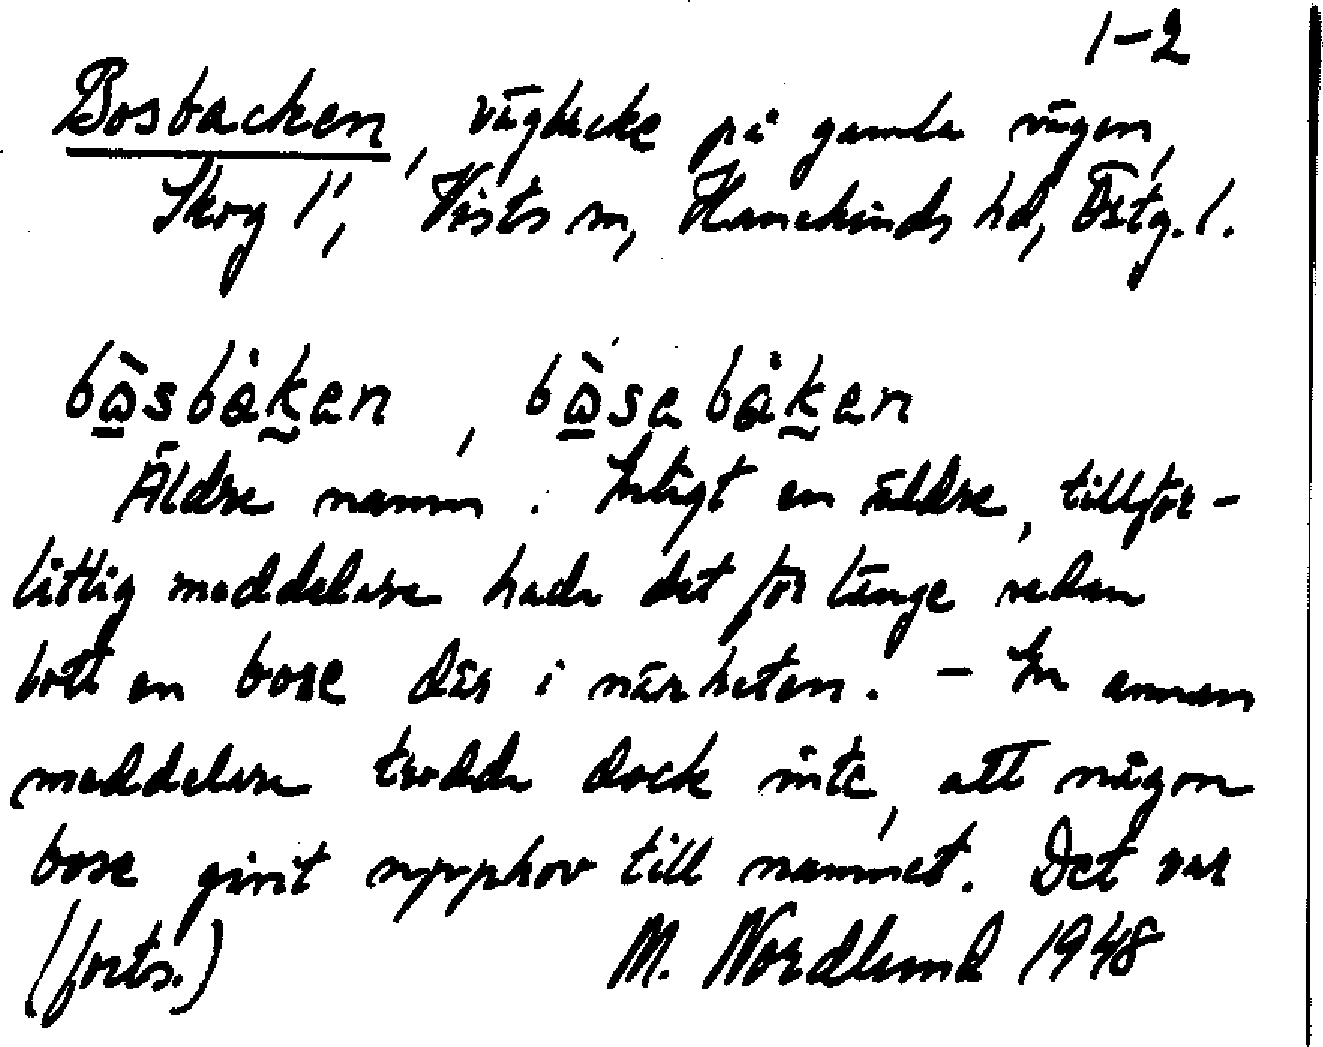 1-2
Bosbacken, vägbacke på gamla vägen,
Skog 1¹, Vists sn, Hanekinds hd, Östg. l.
bɷ̱̀sbȧk̰en, bɷ̱̀sabȧk̰en
Äldre namn. Enligt en äldre, tillför-
litlig meddelare hade det för länge sedan
bott en bose där i närheten. - En annan
meddelare trodde dock inte, att någon
bose givit upphov till namnet. Det var
(forts.) M. Nordlund 1948